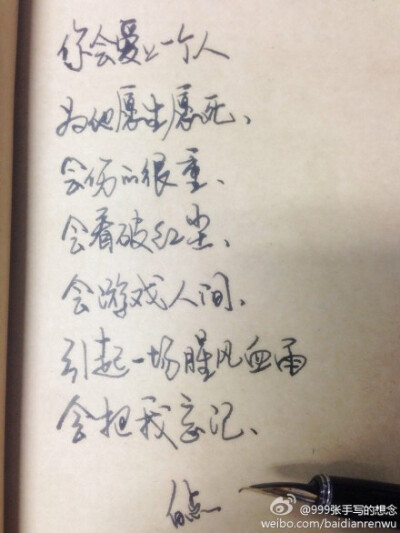 你会爱上一个人
为他愿生愿死、
会伤的很重、
会看破红尘、
会游戏人间、
引起一场腥风血雨
会把我忘记、
白点
@999张手写的想念
weibo.com/baidianrenwu